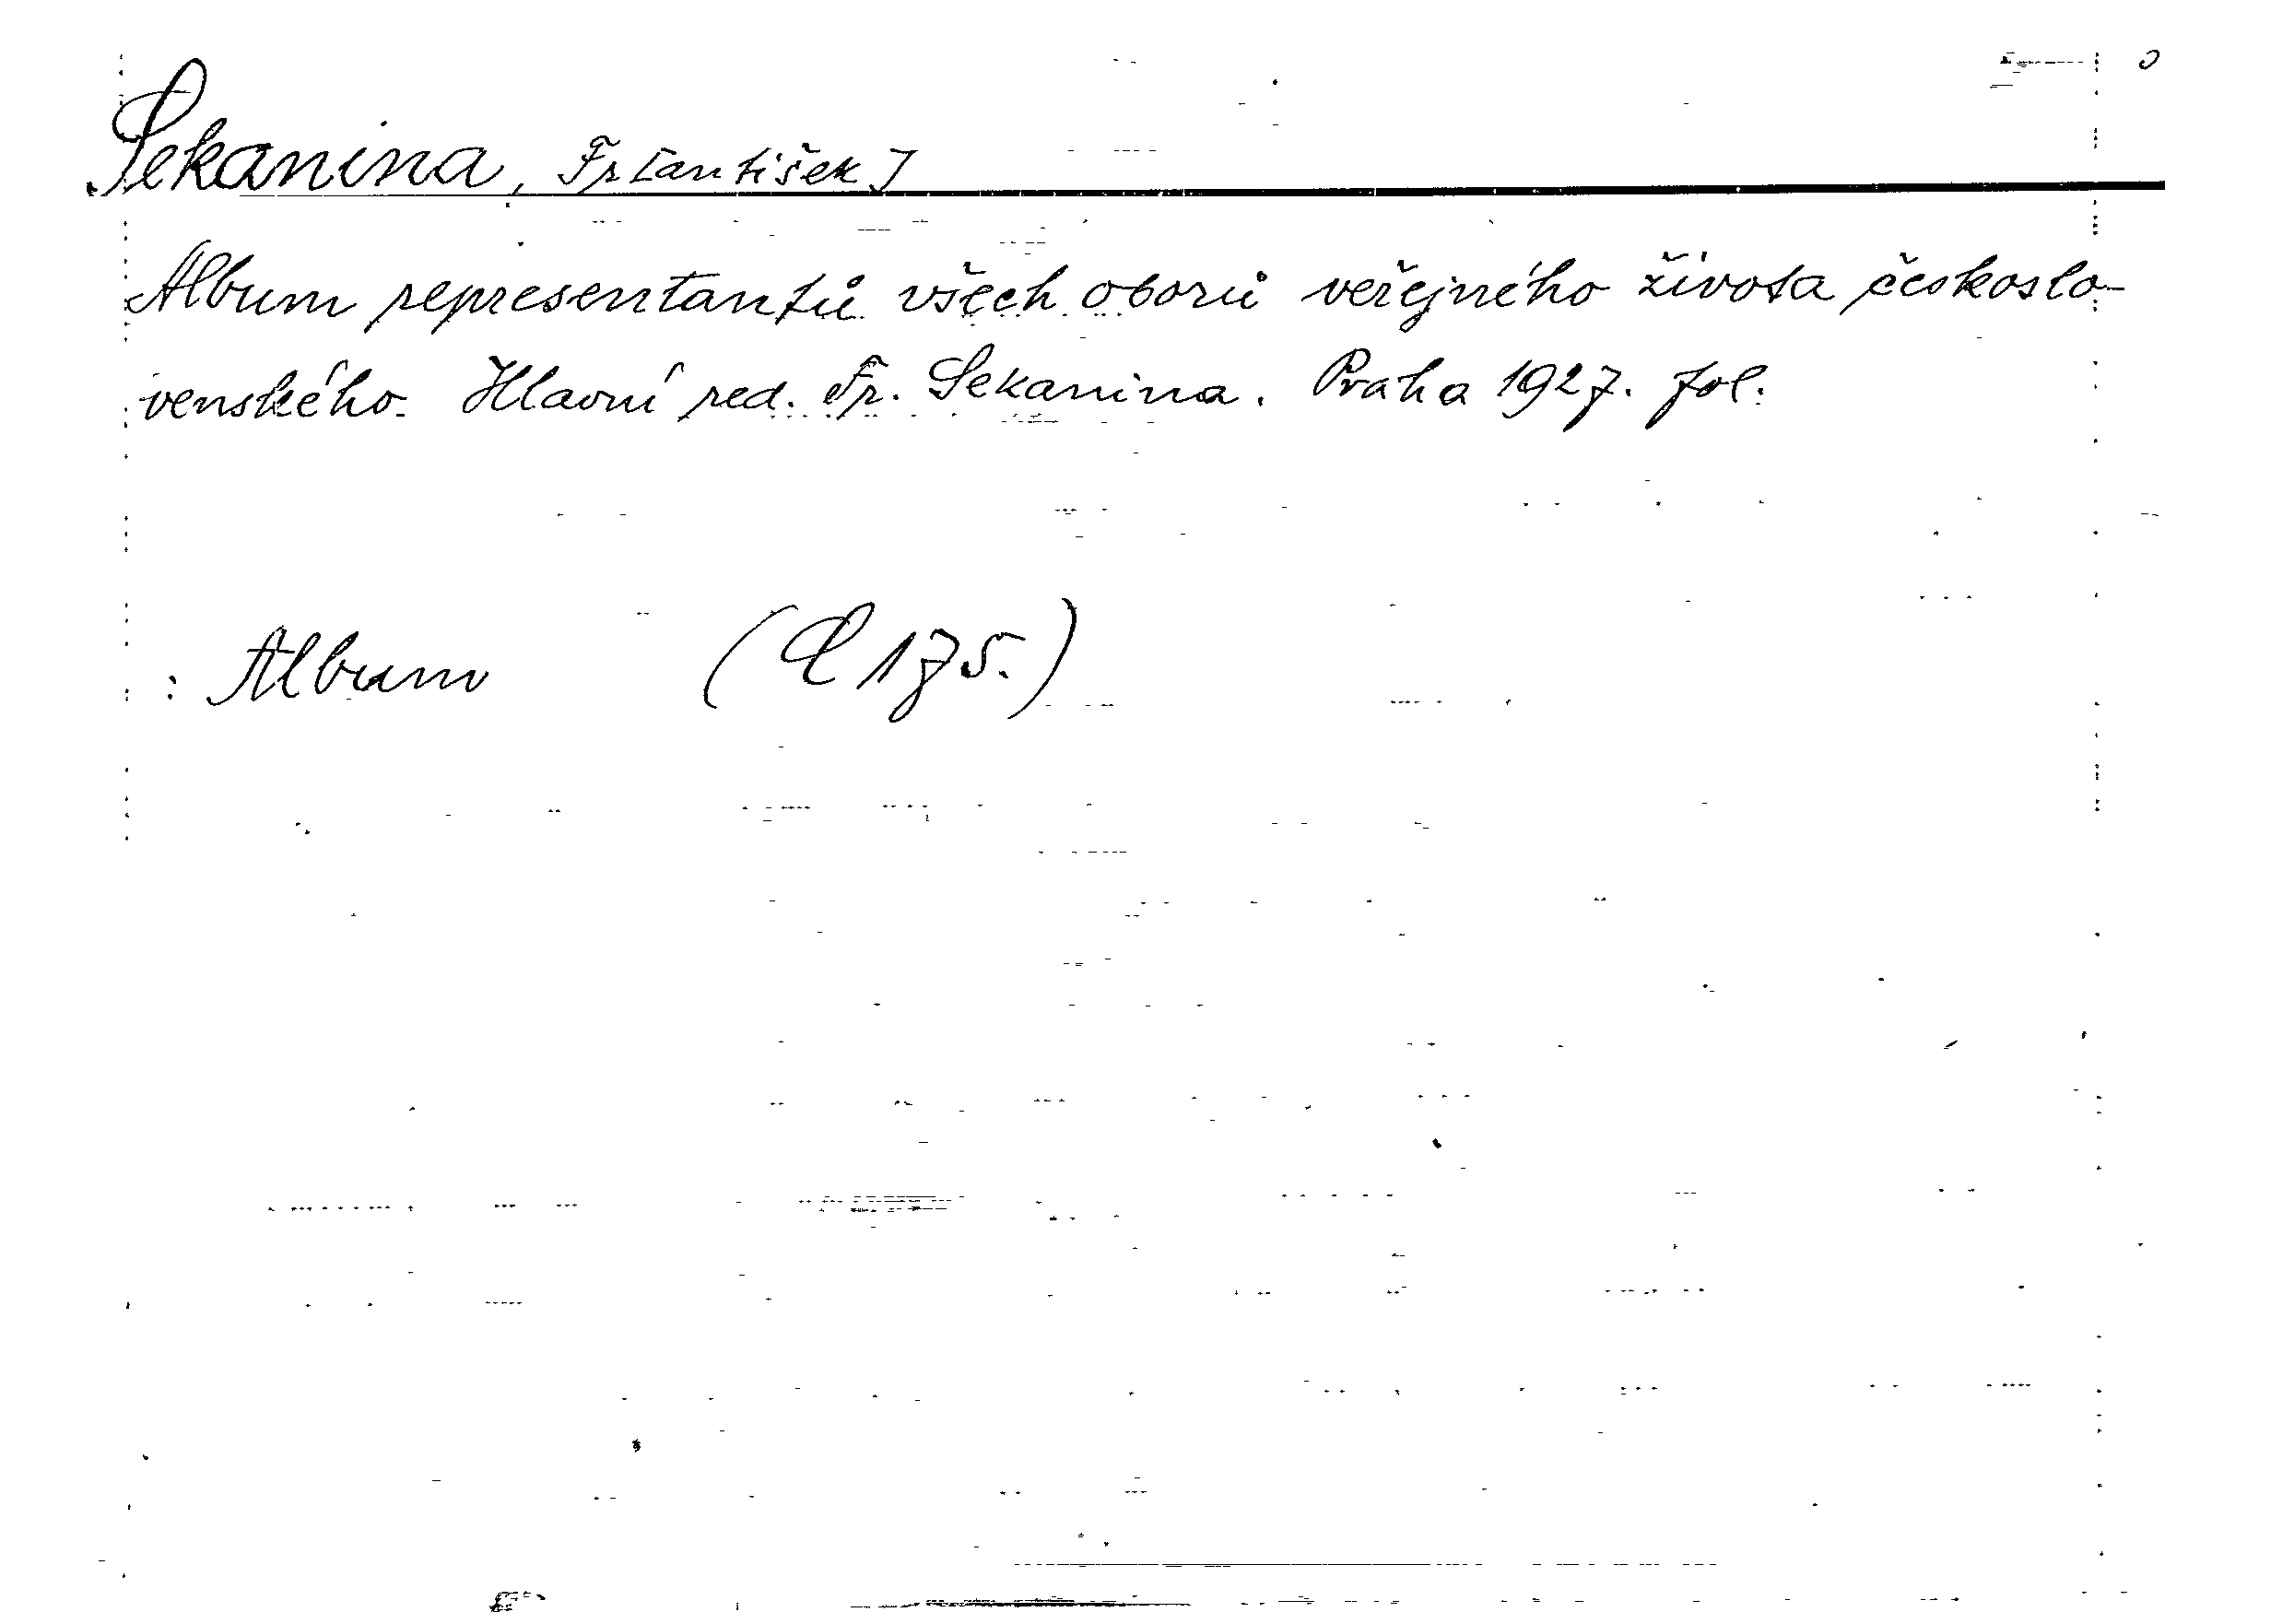 Sekanina, Fr[antišek]
Album representantů všech oborů veřejného života českoslo-
venského. Hlavní red. Fr. Sekanina. Praha 1927. fol.
: Album (d 175.)